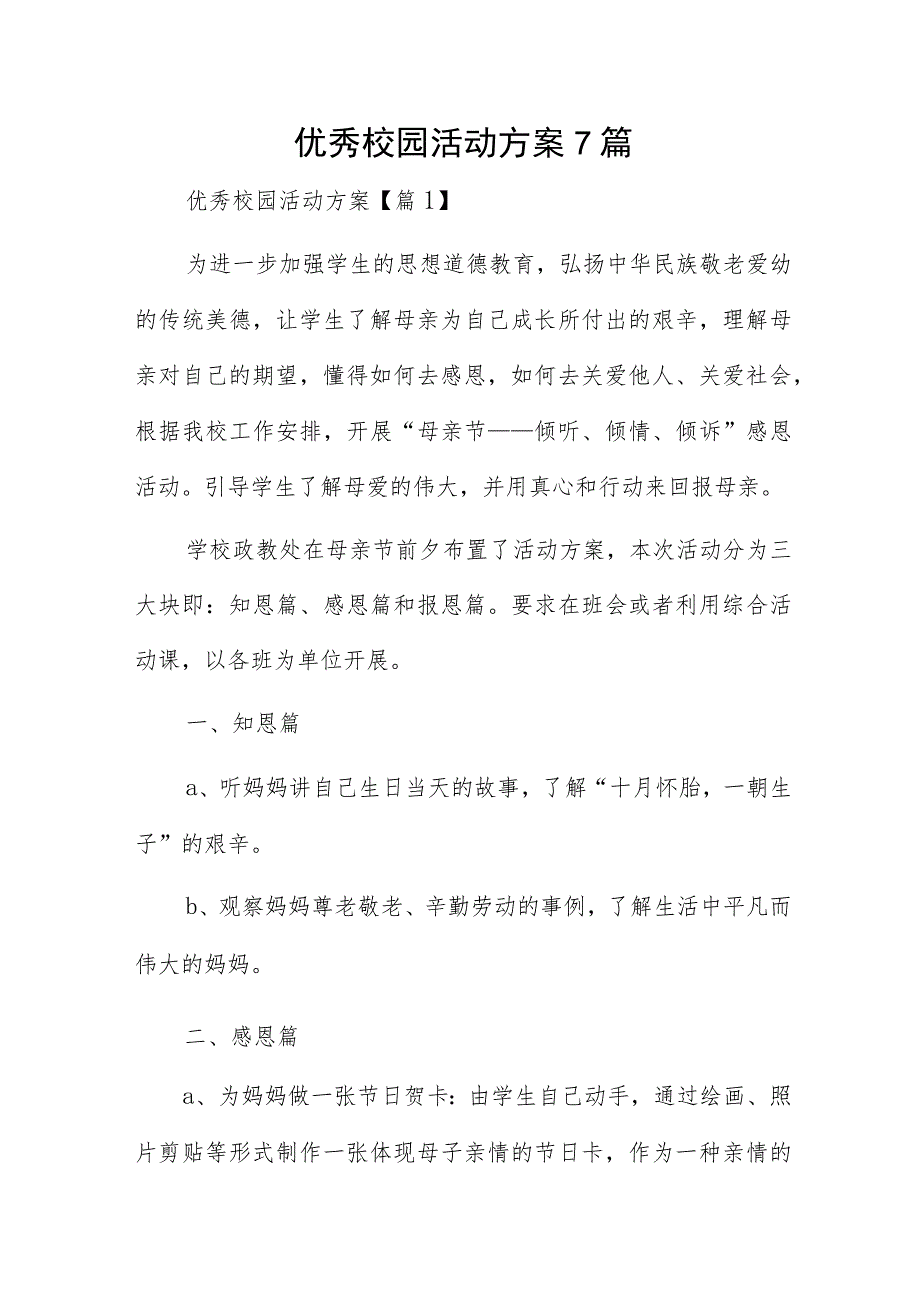 优秀校园活动方案7篇
优秀校园活动方案【篇1】
为进一步加强学生的思想道德教育，弘扬中华民族敬老爱幼
的传统美德，让学生了解母亲为自己成长所付出的艰辛，理解母
亲对自己的期望，懂得如何去感恩，如何去关爱他人、关爱社会，
根据我校工作安排，开展“母亲节——倾听、倾情、倾诉”感恩
活动。引导学生了解母爱的伟大，并用真心和行动来回报母亲。
学校政教处在母亲节前夕布置了活动方案，本次活动分为三
大块即：知恩篇、感恩篇和报恩篇。要求在班会或者利用综合活
动课，以各班为单位开展。
一、知恩篇
a、听妈妈讲自己生日当天的故事，了解“十月怀胎，一朝生
子”的艰辛。
b、观察妈妈尊老敬老、辛勤劳动的事例，了解生活中平凡而
伟大的妈妈。
二、感恩篇
a、为妈妈做一张节日贺卡：由学生自己动手，通过绘画、照
片剪贴等形式制作一张体现母子亲情的节日卡，作为一种亲情的